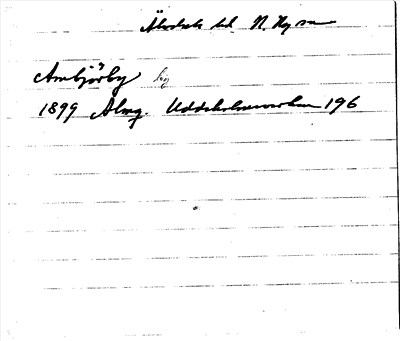 Älvdals hd N. Ny sn
Ambjörby by
1899 Almq. Uddeholmsverken 196